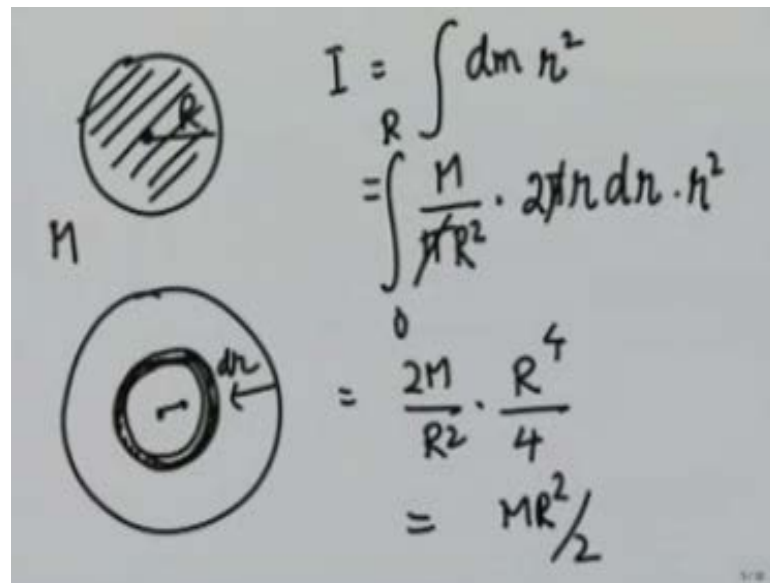 R
M
dr
I = ∫ dm r²
= ∫₀ᴿ M/πR² · 2πr dr · r²
= 2M/R² · R⁴/4
= MR²/2